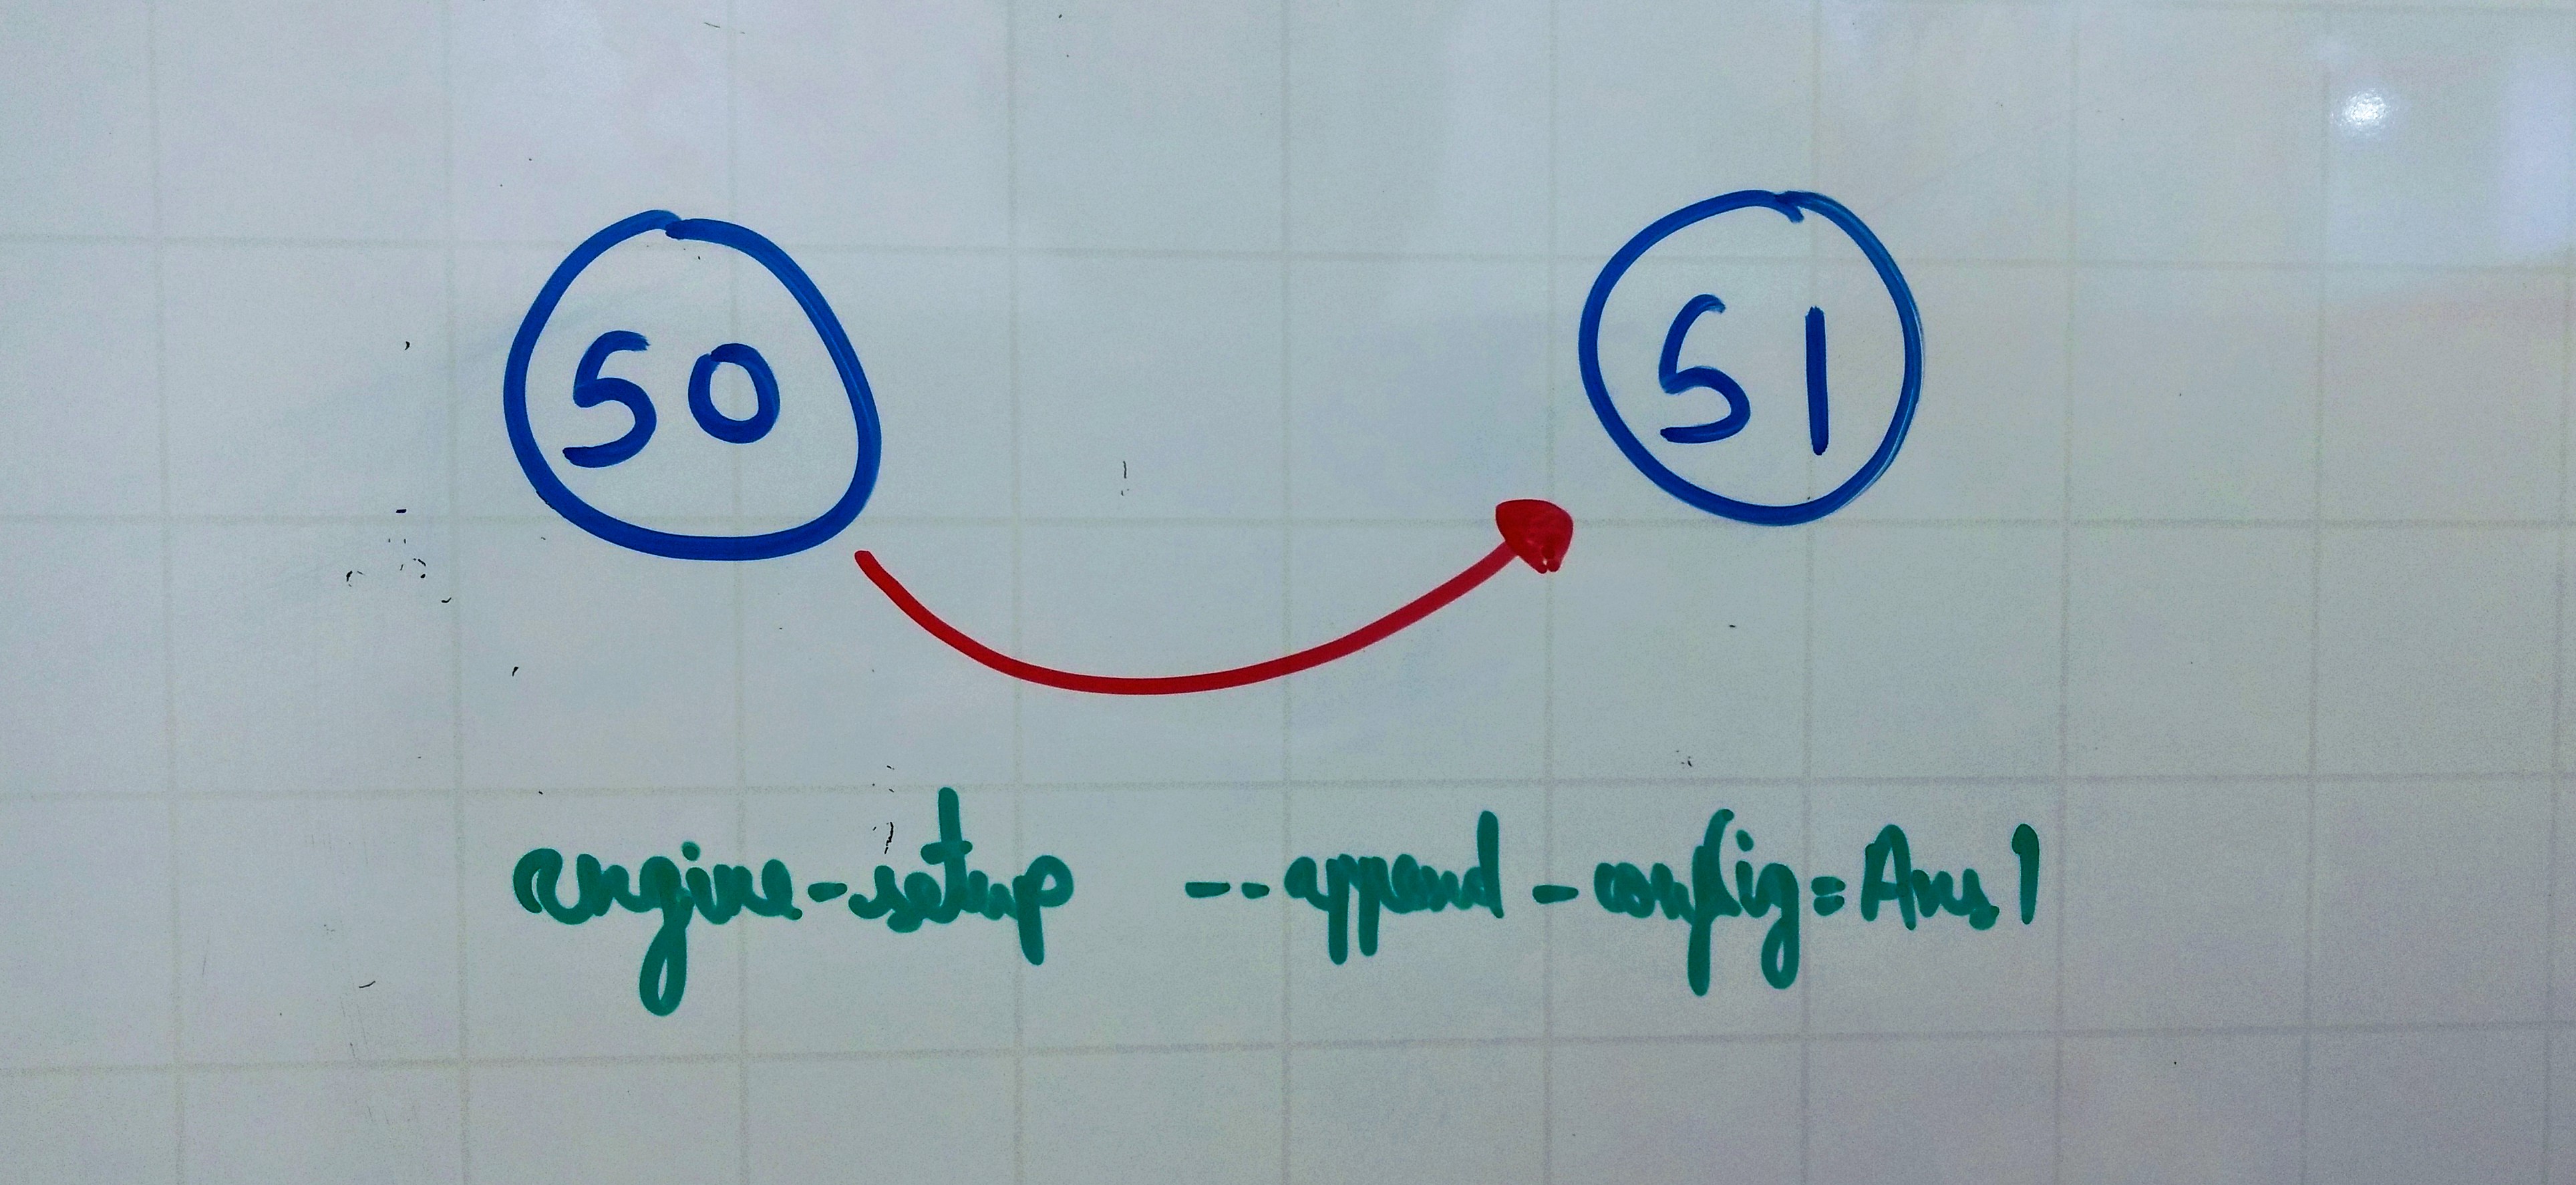 50
51
engine-setup --append-config=Ans1